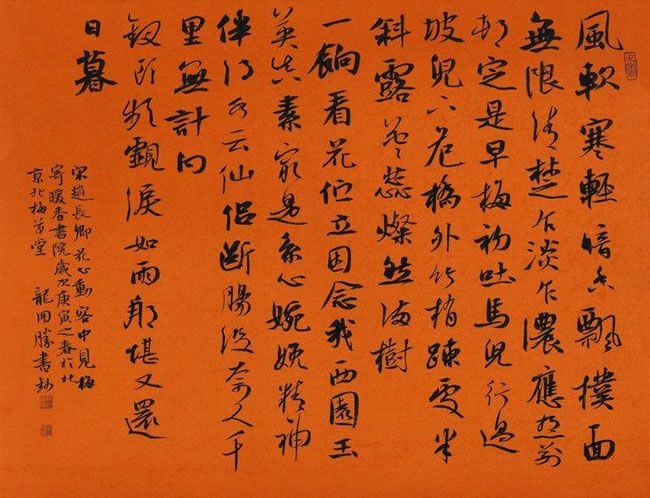 風軟寒輕暗香飄撲面
無限清楚乍淡乍濃應想前
村定是早梅初吐馬兒行過
坡兒下危橋外竹梢疎處半
斜露花蕊燦然滿樹
一餉看花伫立因念我西園玉
英真素最是系心婉娩精神
伴得水云仙侣断腸没奈人千
里無計向
釵頭頻覷淚如雨那堪又還
日暮
宋趙長卿花心動 客中見梅
寄暖香書院歲次庚寅之春於北
京北梅堂 龍開勝書